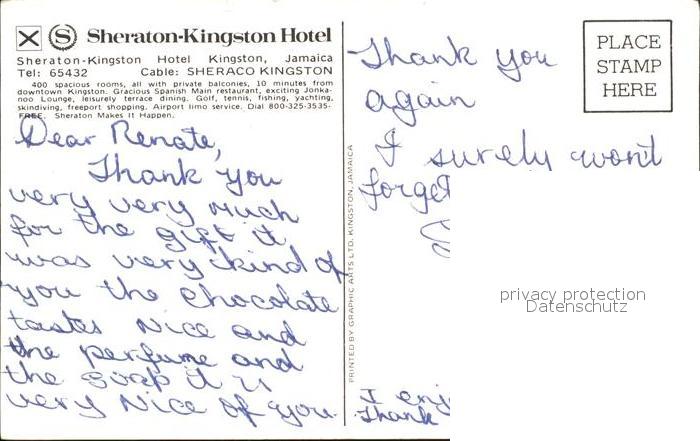 Sheraton-Kingston Hotel
Sheraton-Kingston Hotel Kingston, Jamaica
Tel: 65432 Cable: SHERACO KINGSTON
400 spacious rooms, all with private balconies, 10 minutes from
downtown Kingston. Gracious Spanish Main restaurant, exciting Jonka-
noo Lounge, leisurely terrace dining. Golf, tennis, fishing, yachting,
skindiving, freeport shopping. Airport limo service. Dial 800-325-3535-
FREE. Sheraton Makes It Happen.
Dear Renate,
Thank you
very very much
for the gift it
was very kind of
you the chocolate
tastes nice and
the perfume and
the soap it is
very nice of you.
PRINTED BY GRAPHIC ARTS LTD. KINGSTON, JAMAICA
PLACE
STAMP
HERE
Thank you
again
I surely wont
forget
I enj
Thank
privacy protection
Datenschutz